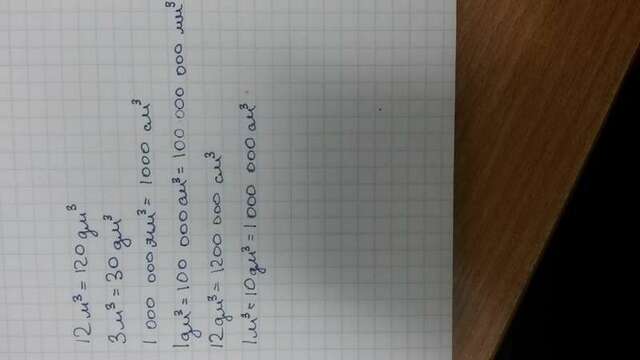 12 м³ = 120 дм³
3 м³ = 30 дм³
1 000 000 мм³ = 1000 см³
1 дм³ = 100 000 см³ = 100 000 000 мм³
12 дм³ = 1200 000 см³
1 м³ = 10 дм³ = 1 000 000 см³